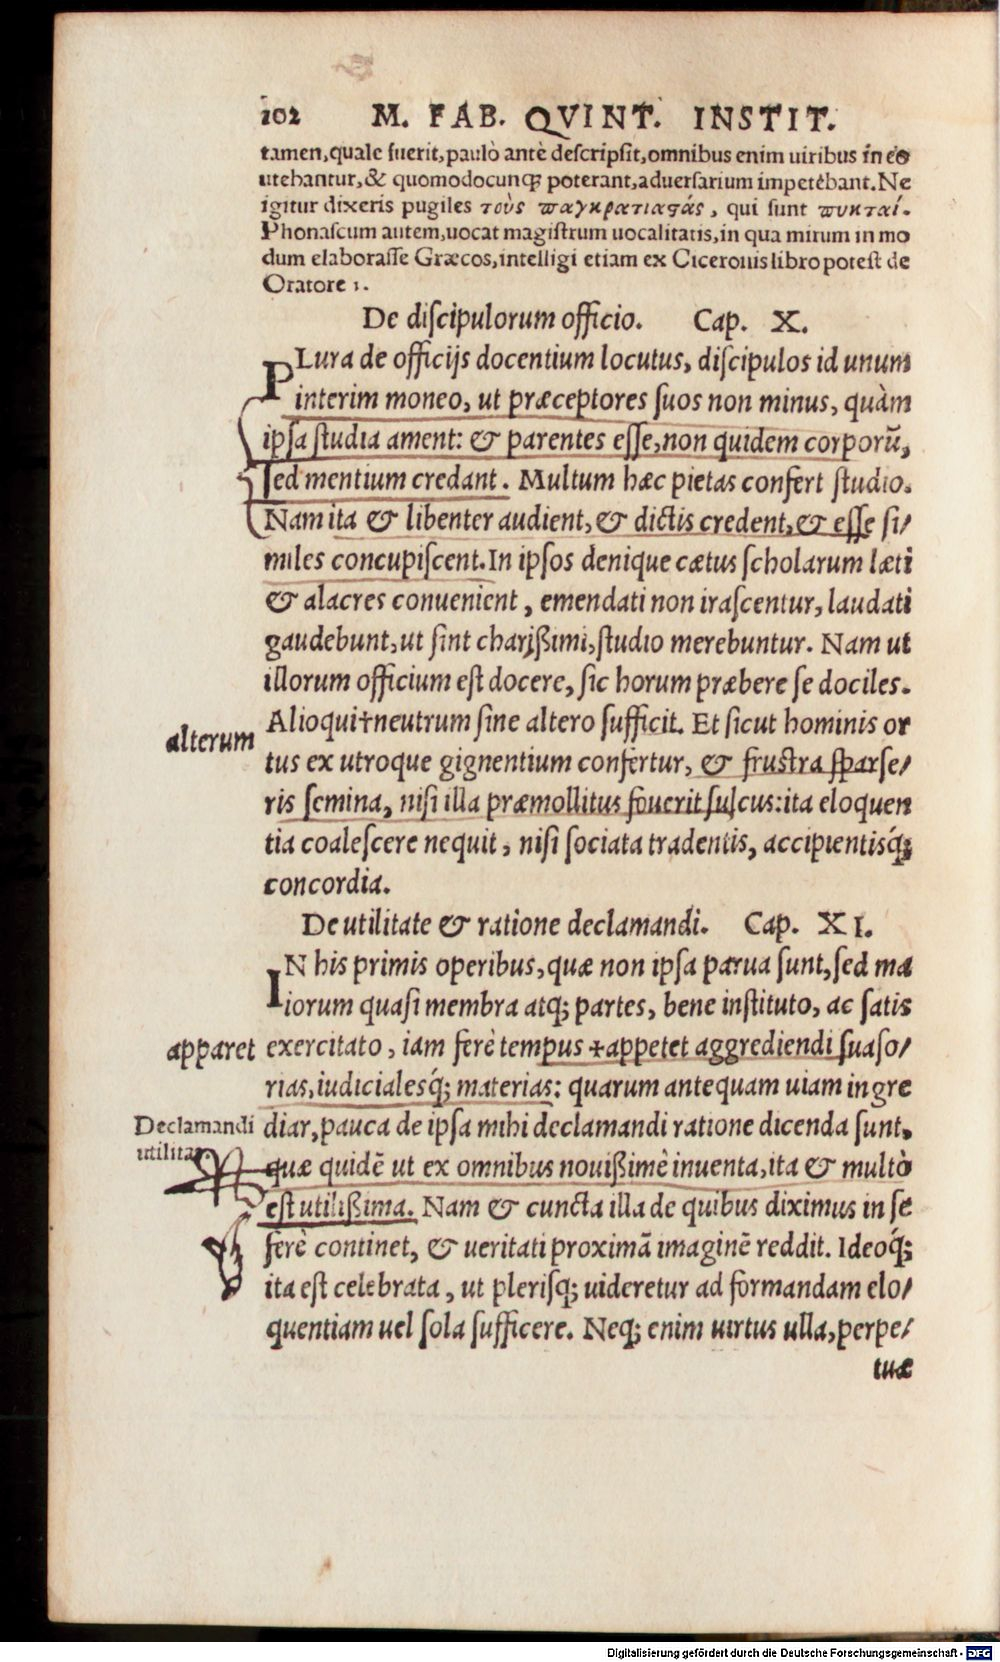 102 M. FAB. QVINT. INSTIT.
tamen,quale fuerit,paulò antè deſcripſit,omnibus enim uiribus in eo
utebantur,& quomodocunq; poterant,aduerſarium impetebant.Ne
igitur dixeris pugiles τοὺς παγκρατιαϛάς, qui ſunt πυκταί.
Phonaſcum autem,uocat magiſtrum uocalitatis,in qua mirum in mo
dum elaboraſſe Græcos,intelligi etiam ex Ciceronis libro poteſt de
Oratore 1.
De diſcipulorum officio. Cap. X.
PLura de officijs docentium locutus, diſcipulos id unum
interim moneo, ut præceptores ſuos non minus, quàm
ipſa ſtudia ament: & parentes eſſe,non quidem corporũ,
ſed mentium credant. Multum hæc pietas confert ſtudio.
Nam ita & libenter audient,& dictis credent,& eſſe ſi/
miles concupiſcent.In ipſos denique cætus ſcholarum læti
& alacres conuenient, emendati non iraſcentur, laudati
gaudebunt,ut ſint charißimi,ſtudio merebuntur. Nam ut
illorum officium eſt docere, ſic horum præbere ſe dociles.
Alioqui†neutrum ſine altero ſufficit. Et ſicut hominis or
alterum
tus ex utroque gignentium confertur, & fruſtra ſparſe/
ris ſemina, niſi illa præmollitus fouerit ſulcus:ita eloquen
tia coaleſcere nequit, niſi ſociata tradentis, accipientisq́;
concordia.
De utilitate & ratione declamandi. Cap. XI.
IN his primis operibus,quæ non ipſa parua ſunt,ſed ma
iorum quaſi membra atq; partes, bene inſtituto, ac ſatis
apparet exercitato, iam ferè tempus +appetet aggrediendi ſuaſo/
rias,iudicialesq́; materias: quarum antequam uiam ingre
Declamandi diar,pauca de ipſa mihi declamandi ratione dicenda ſunt,
utilitas.
quæ quidẽ ut ex omnibus nouißimè inuenta,ita & multò
eſt utilißima. Nam & cuncta illa de quibus diximus in ſe
ferè continet, & ueritati proximã imaginẽ reddit. Ideoq́;
ita eſt celebrata, ut pleriſq; uideretur ad formandam elo/
quentiam uel ſola ſufficere. Neq; enim uirtus ulla,perpe/
tuæ
Digitalisierung gefördert durch die Deutsche Forschungsgemeinschaft - DFG